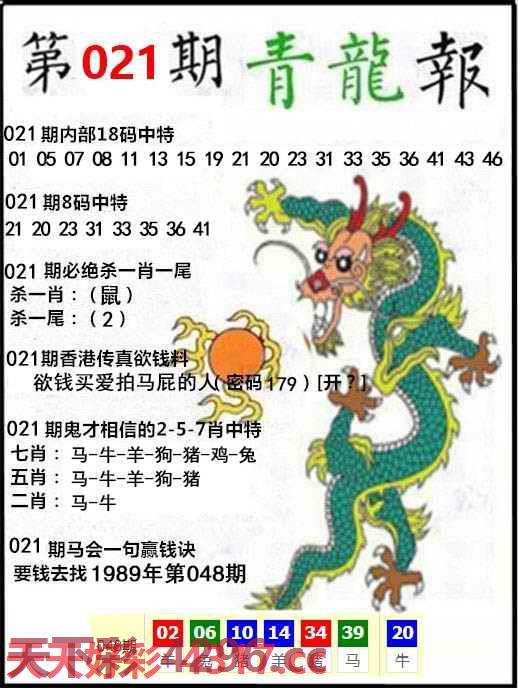 第021期 青龍報
021期内部18码中特
01 05 07 08 11 13 15 19 21 20 23 31 33 35 36 41 43 46
021期8码中特
21 20 23 31 33 35 36 41
021期必绝杀一肖一尾
杀一肖：（鼠）
杀一尾：（2）
021期香港传真欲钱料
欲钱买爱拍马屁的人（密码179）[开？]
021期鬼才相信的2-5-7肖中特
七肖：马-牛-羊-狗-猪-鸡-兔
五肖：马-牛-羊-狗-猪
二肖：马-牛
021期马会一句赢钱诀
要钱去找1989年第048期
048期 02 06 10 14 34 39 20
马 牛
天下好彩4296.cc